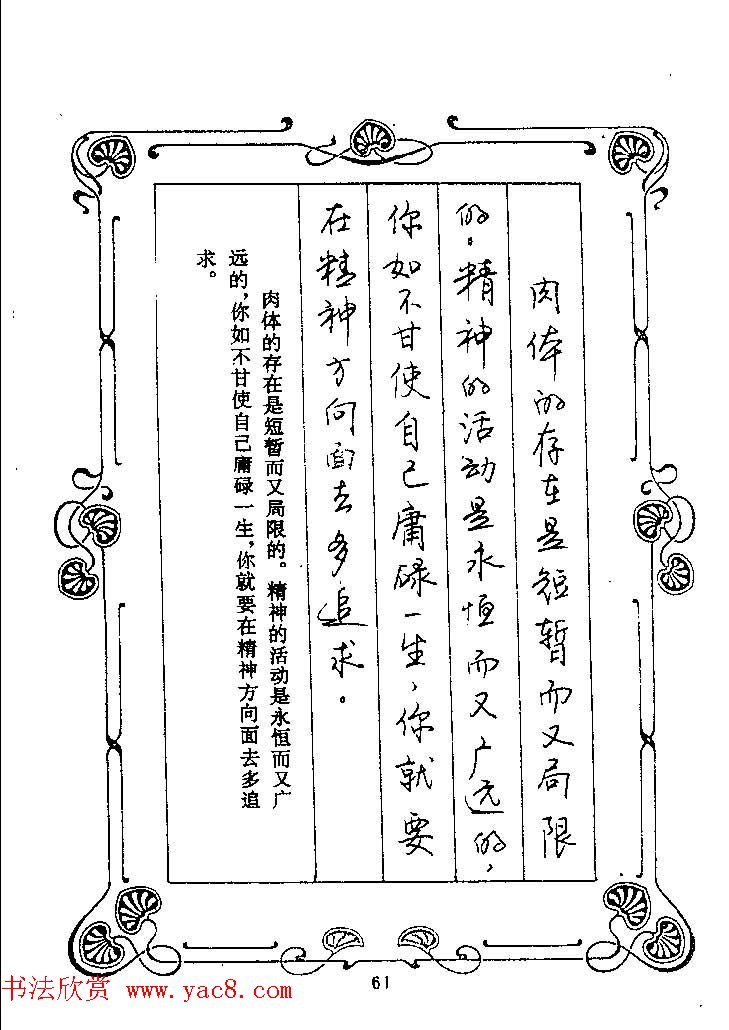 肉体的存在是短暂而又局限
的。精神的活动是永恒而又广远的,
你如不甘使自己庸碌一生,你就要
在精神方向面去多追求。
肉体的存在是短暂而又局限的。精神的活动是永恒而又广
远的,你如不甘使自己庸碌一生,你就要在精神方向面去多追
求。
61
书法欣赏 www.yac8.com